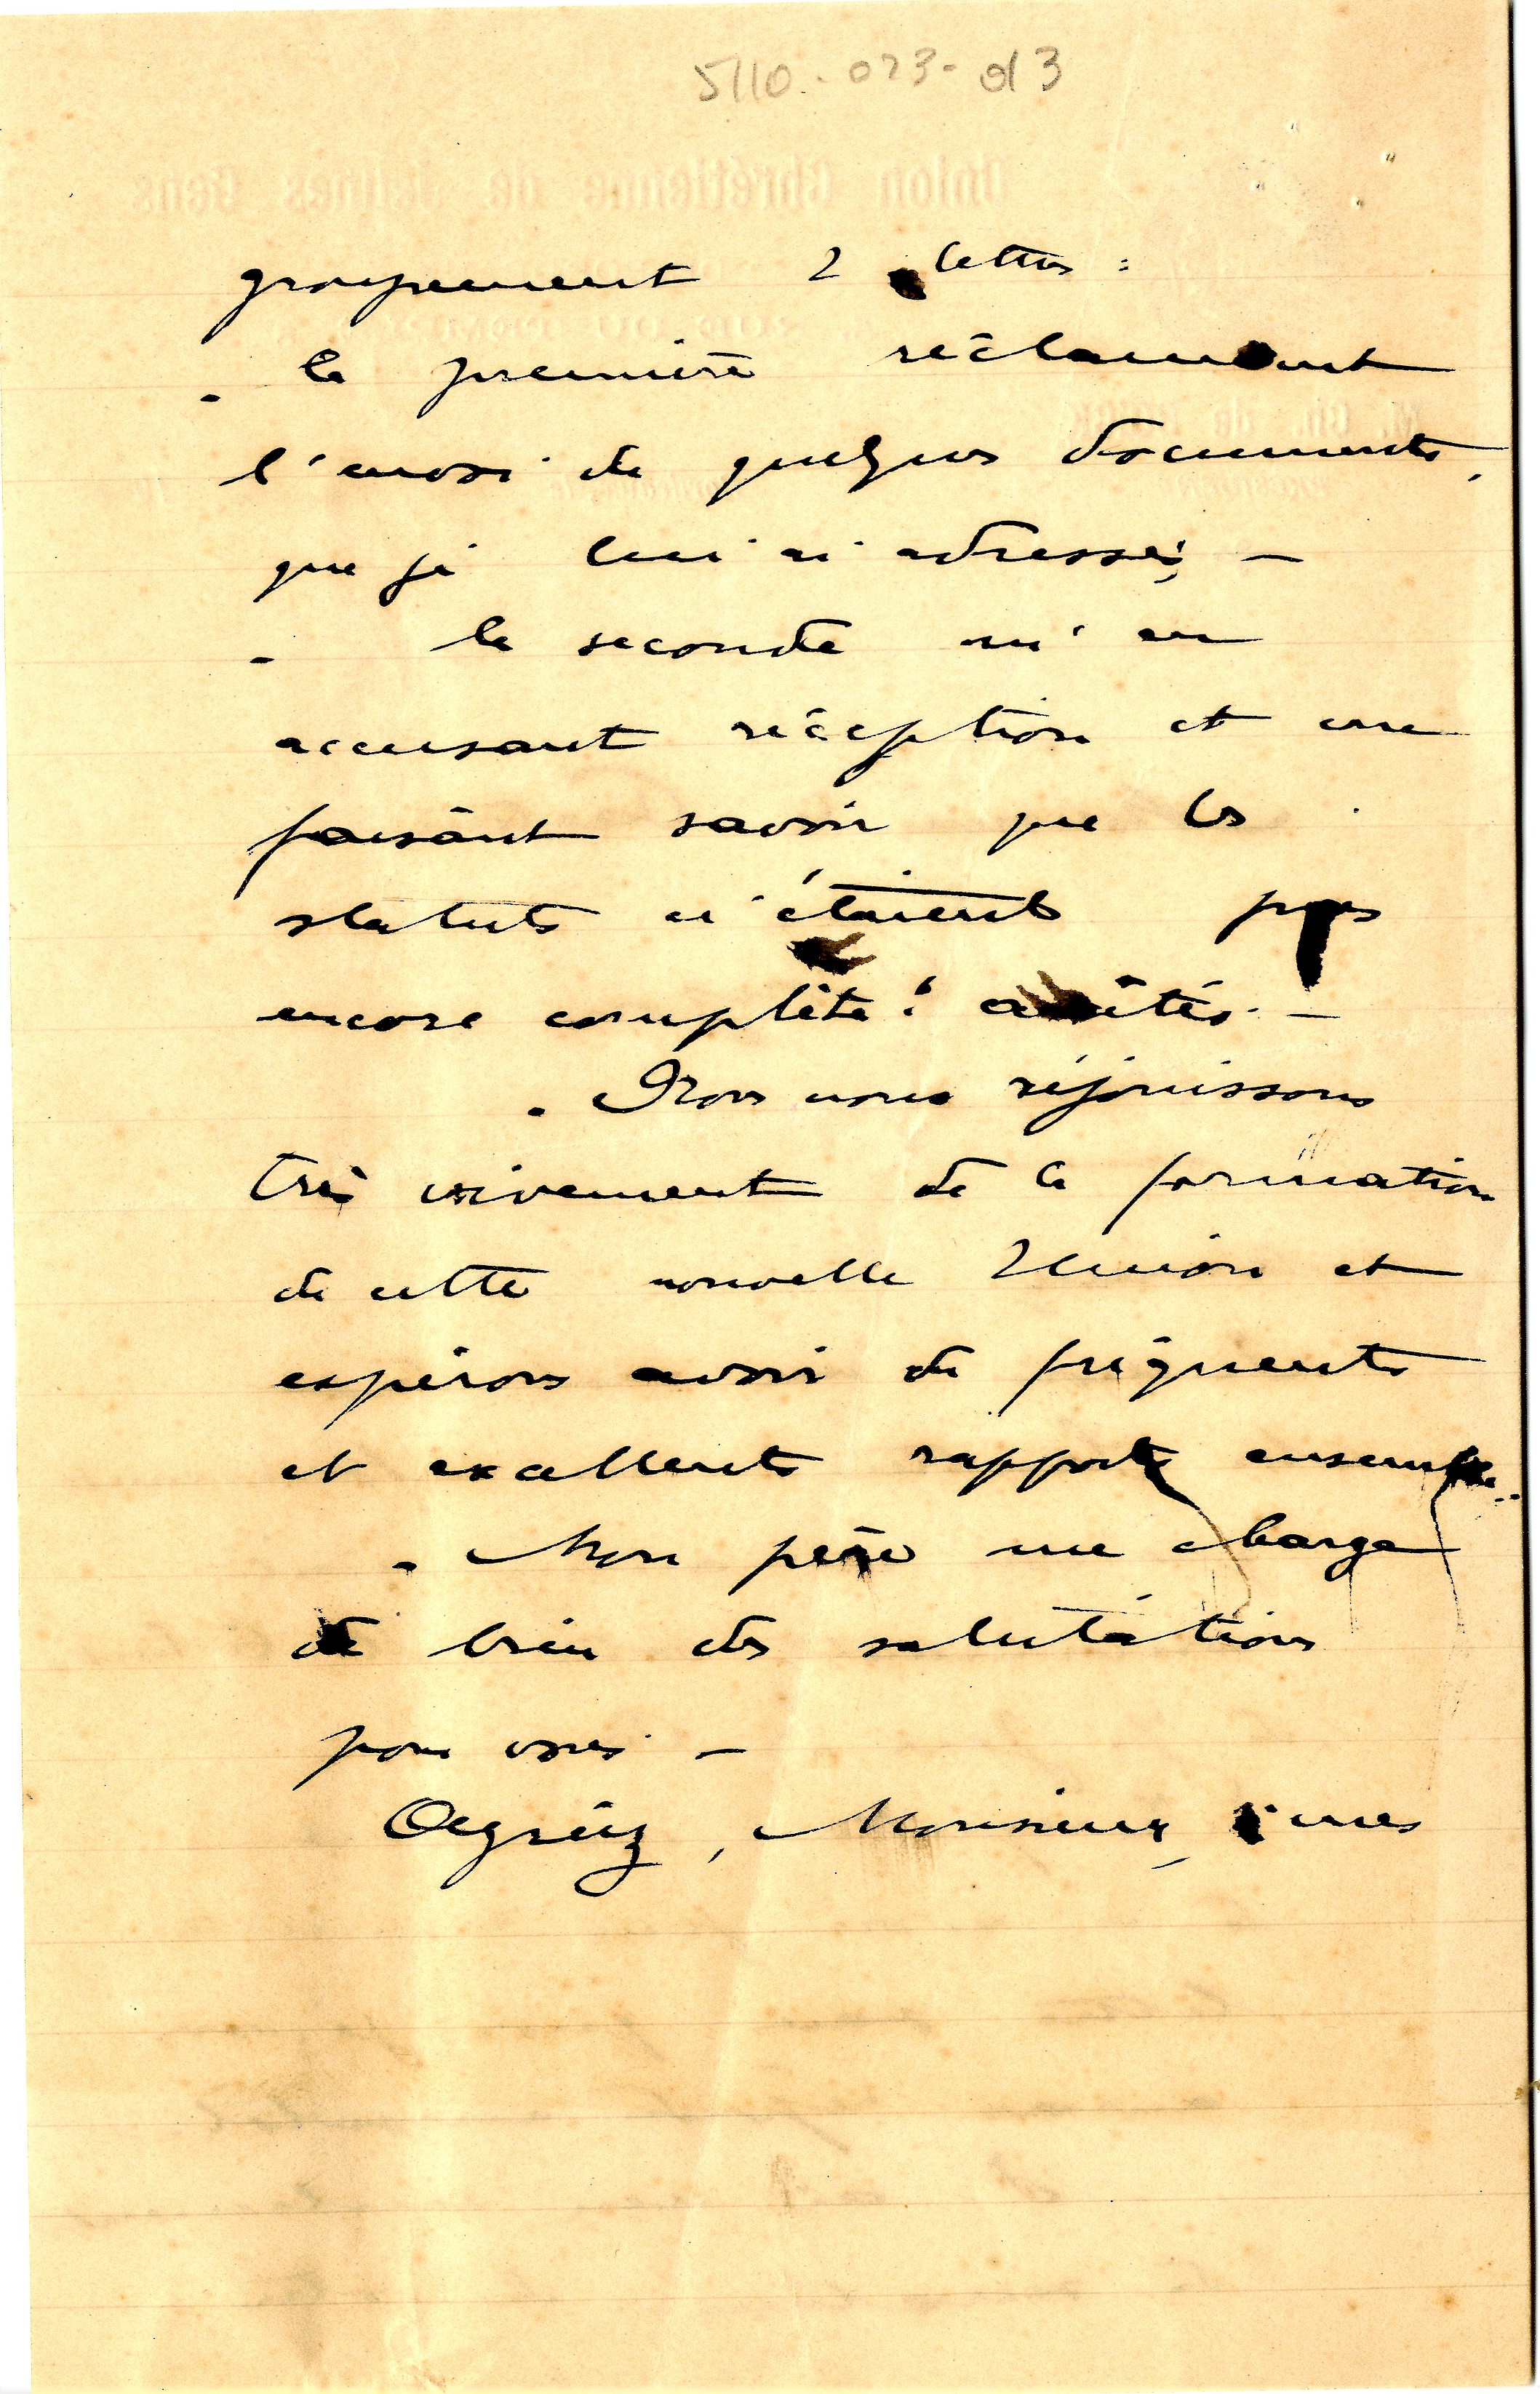 5110-073-d3
groupement 2 lettres :
- la première réclamant
l'envoi de quelques documents,
que je lui ai adressés, -
- la seconde m'en
accusant réception et me
faisant savoir que les
statuts n'étaient pas
encore complèt! arrêtés. -
- Nous nous réjouissons
très vivement de la formation
de cette nouvelle Union et
espérons avoir de fréquents
et excellents rapports ensemble.
- Mon père me charge
de bien des salutations
pour vous -
Agréez, Monsieur, mes